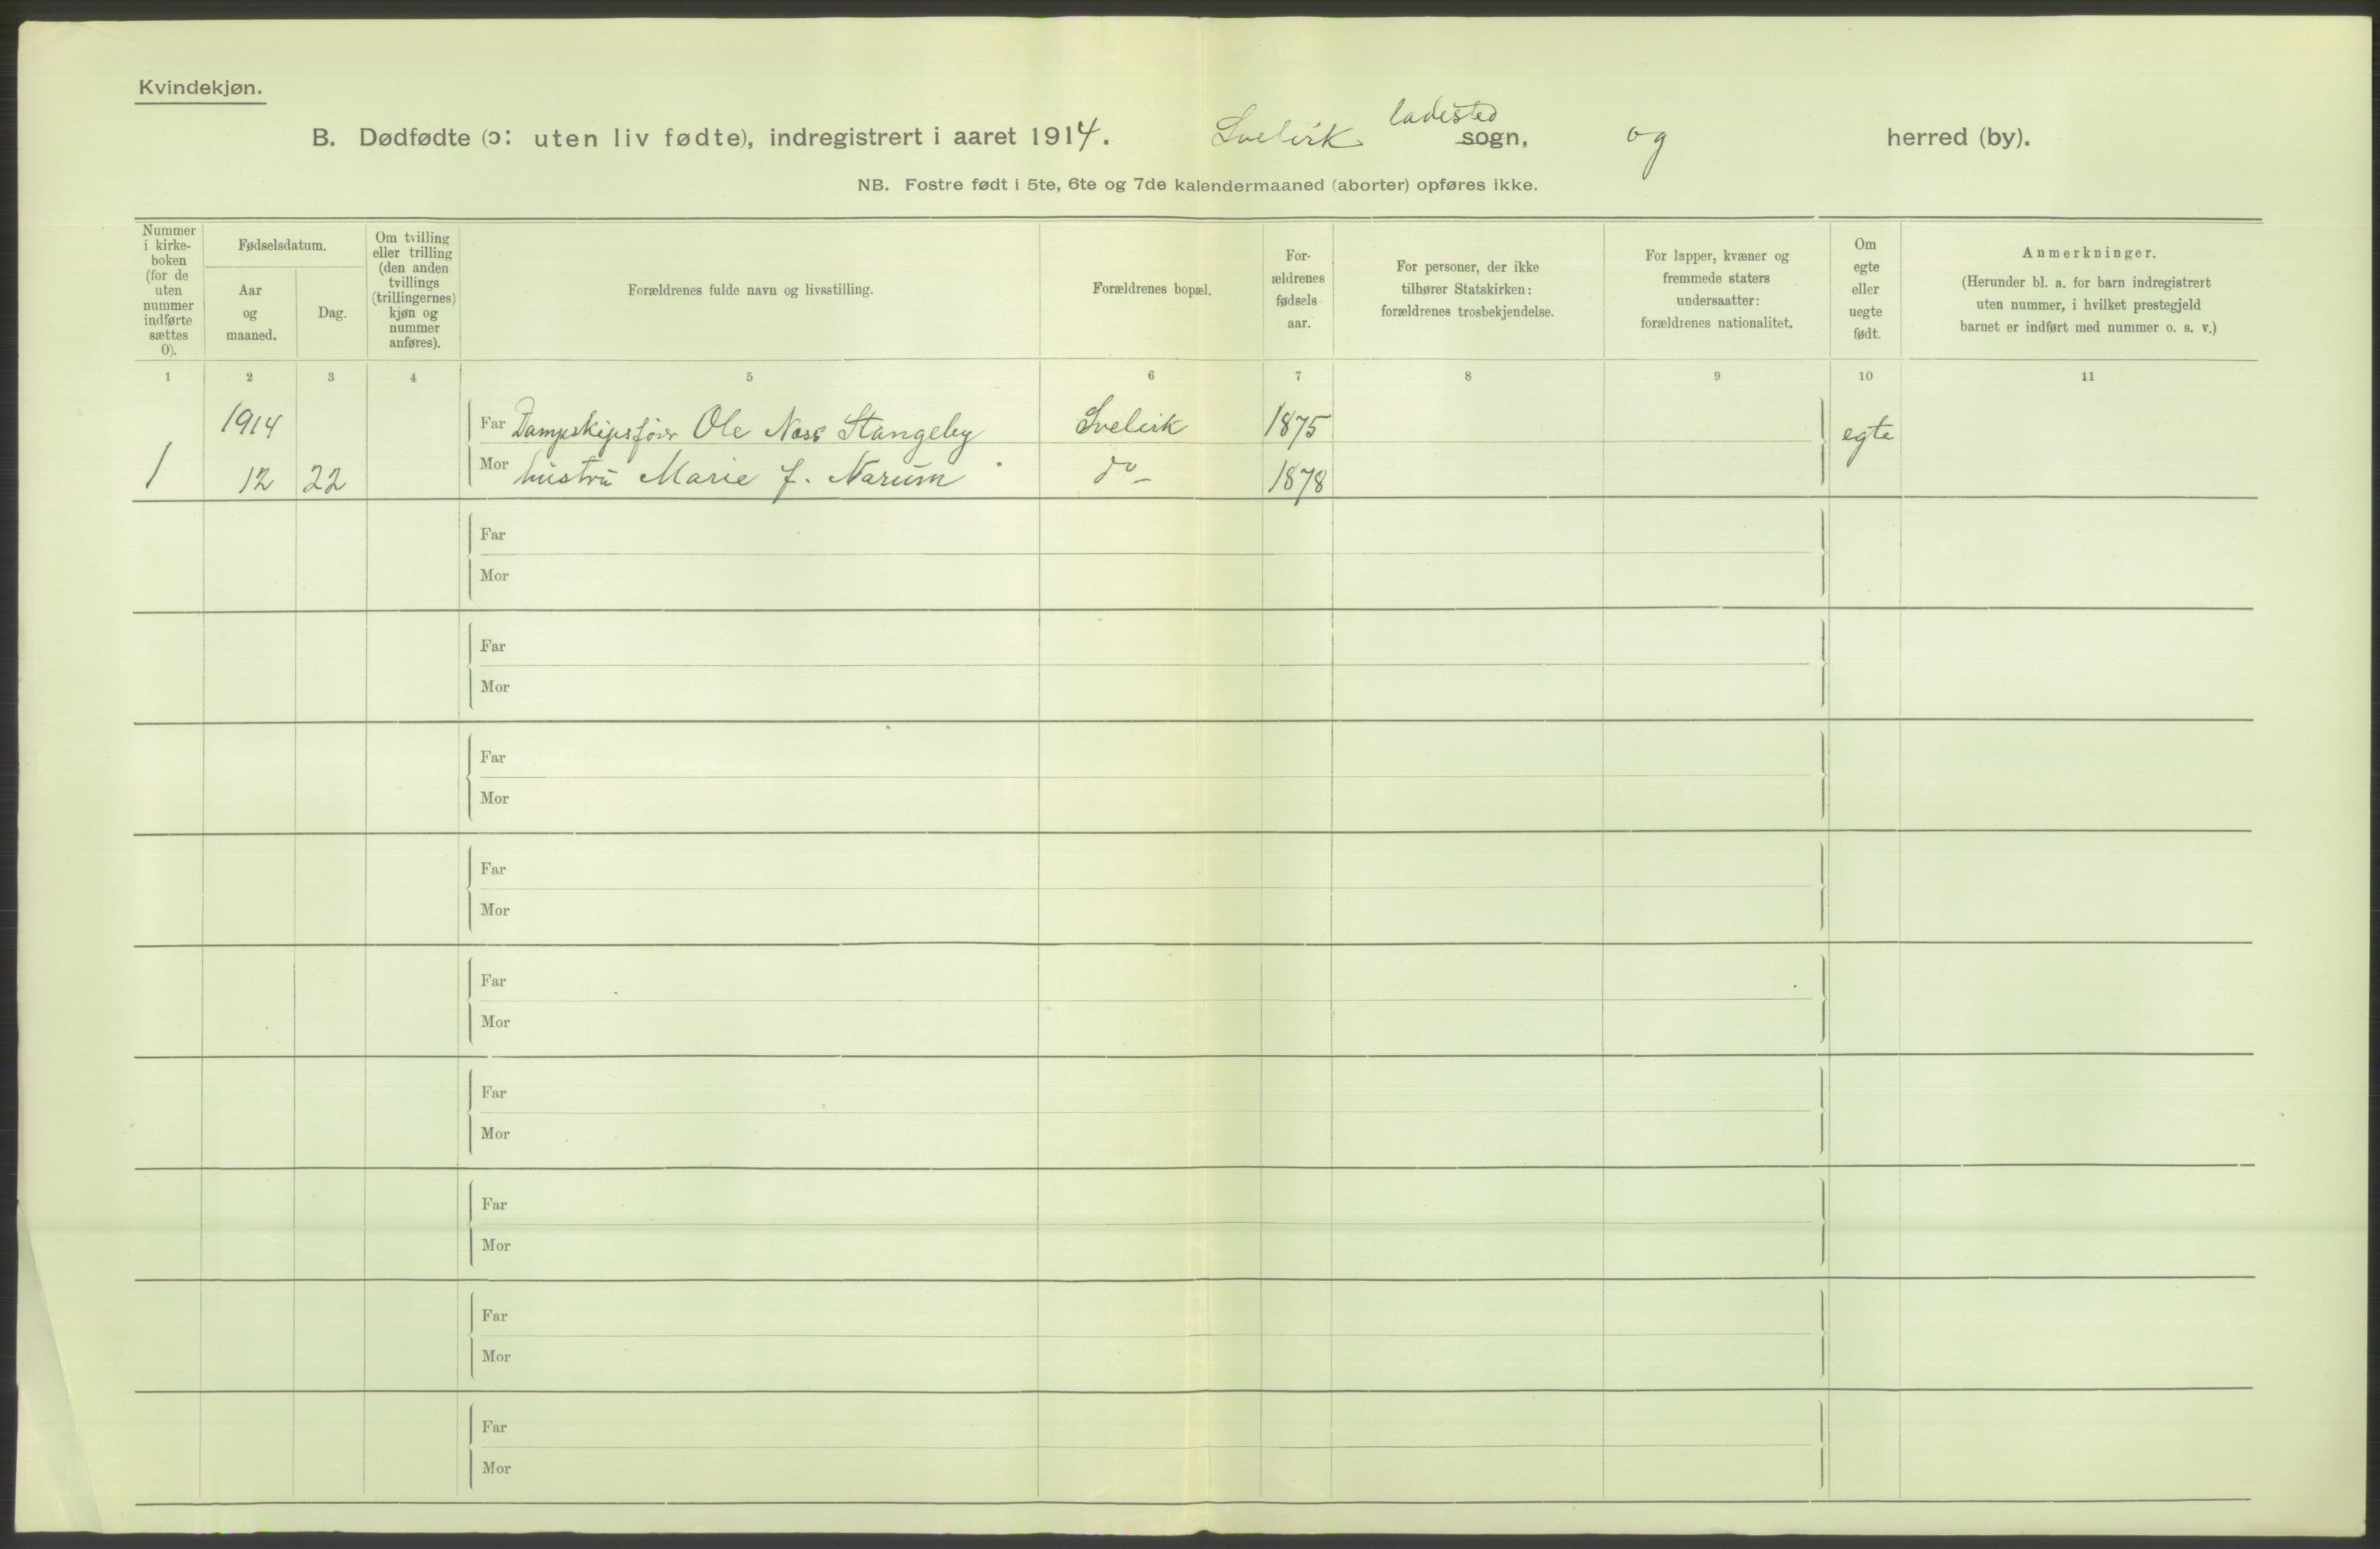 Kvindekjøn.
B. Dødfødte (ɔ: uten liv fødte), indregistrert i aaret 1914. Svelvik ladested sogn, og herred (by).
NB. Fostre født i 5te, 6te og 7de kalendermaaned (aborter) opføres ikke.
Nummer
i kirke-
boken
(for de
uten
nummer
indførte
sættes
0).
Fødselsdatum.
Aar
og
maaned.
Dag.
Om tvilling
eller trilling
(den anden
tvillings
(trillingernes)
kjøn og
nummer
anføres).
Forældrenes fulde navn og livsstilling.
Forældrenes bopæl.
For-
ældrenes
fødsels
aar.
For personer, der ikke
tilhører Statskirken:
forældrenes trosbekjendelse.
For lapper, kvæner og
fremmede staters
undersaatter:
forældrenes nationalitet.
Om
egte
eller
uegte
født.
Anmerkninger.
(Herunder bl. a. for barn indregistrert
uten nummer, i hvilket prestegjeld
barnet er indført med nummer o. s. v.)
1 2 3 4 5 6 7 8 9 10 11
1914 Far Dampskipsfører Ole Næss Stangeby Svelvik 1875 egte
1 12 22 Mor hustru Marie f. Narum do 1878
Far
Mor
Far
Mor
Far
Mor
Far
Mor
Far
Mor
Far
Mor
Far
Mor
Far
Mor
Far
Mor